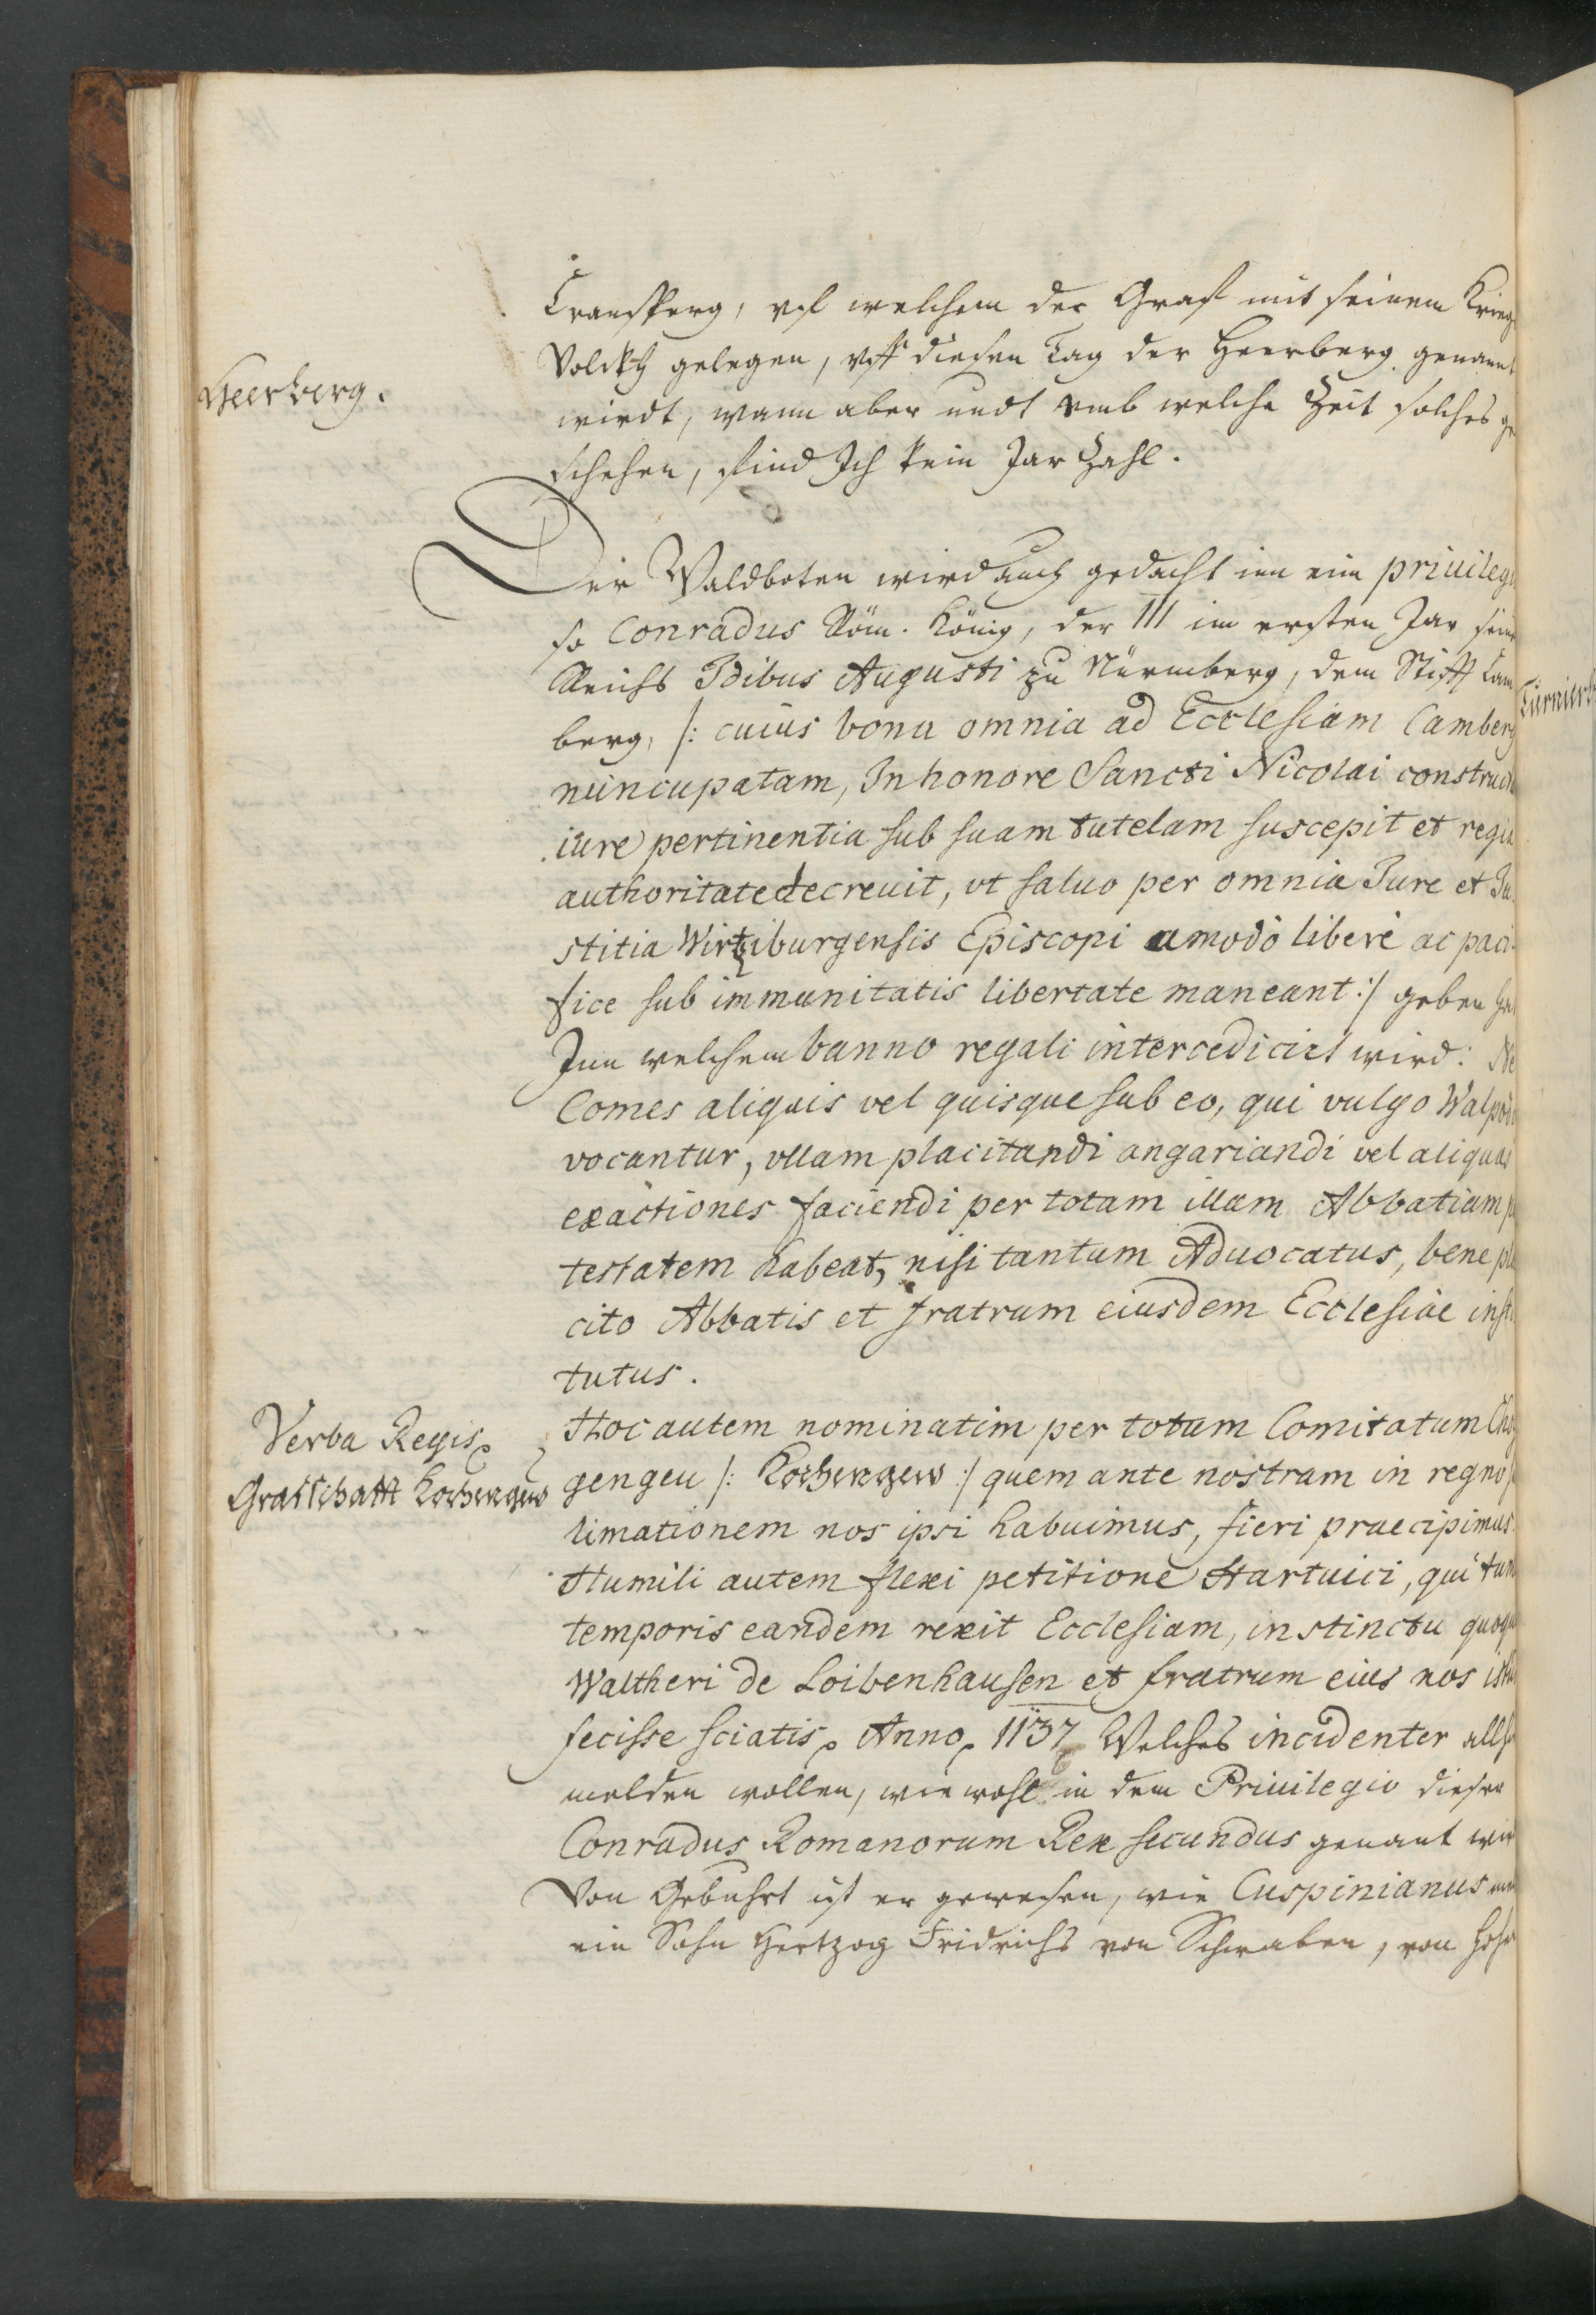 Cransperg, vf welchem der Graf mit seinem Krieg
Heerberg.
Volckh gelegen, vff diesen Tag der Heerberg genannt
wirdt, wann aber undt vmb welche Zeit solches ge
schehen, find Ich kein Jar Zahl.
Der Waldboten wird auch gedacht inn eim priuileg
so Conradus Röm. König, der III im ersten Jar sein
Reichs Idibus Augusti zu Nürmberg, dem Stifft Cam
berg, /: cuius bona omnia ad Ecclesiam Camberg
nuncupatam, In honore Sancti Nicolai construct
iure pertinentia sub suam tutelam suscepit et regia
authoritate decreuit, vt saluo per omnia Jure et Ju
stitia Wirtziburgensis Episcopi amodo liberè ac paci
fice sub immunitatis libertate maneant :/ geben hat
Inn welchem banno regali intercedicirt wird: Ne
Comes aliquis vel quisque sub eo, qui vulgo Walpodo
vocantur, vllam placitandi angariandi vel aliquas
exactiones faciendi per totam illam Abbatiam p
testatem habeat, nisi tantum Aduocatus, bene pla
cito Abbatis et fratrum eiusdem Ecclesiae insti
tutus.
Verba Regis
Hoc autem nominatim per totum Comitatum Cho
Graffschafft Kochengew
gengeu /: Kochengew :/ quem ante nostram in regno s
limationem nos ipsi habuimus, fieri praecipimus.
Humili autem flexi petitione Hartuici, qui tunc
temporis eandem rexit Ecclesiam, instinctu quoque
Waltheri de Loibenhausen et fratrum eius nos istud
fecisse sciatis. Anno. 1137 Welches incidenter allhie
melden wollen, wiewohl in dem Priuilegio dieser
Conradus Romanorum Rex secundus genant wir
Von Gebuhrt ist er gewesen, wie Cuspinianus
ein Sohn Hertzog Fridrichs von Schwaben, von Hohe
Turnierb